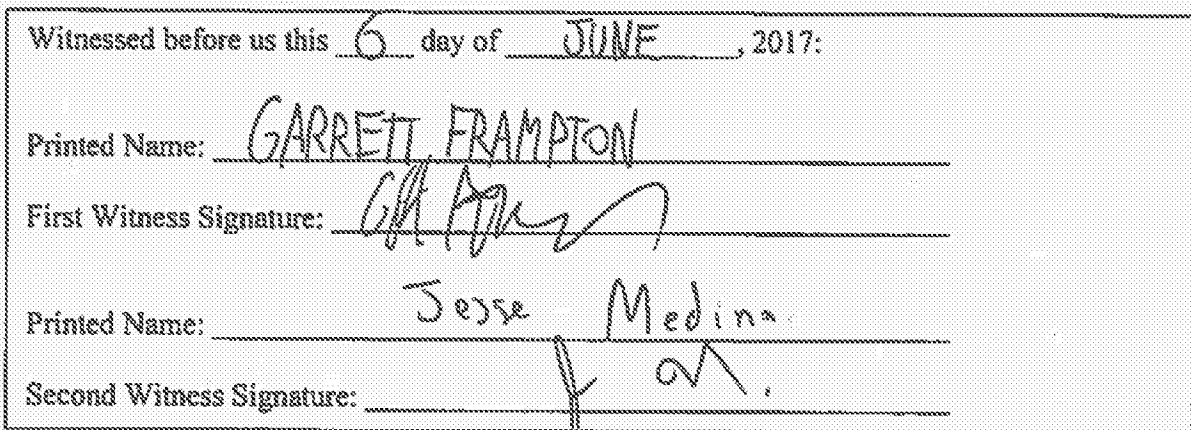 Witnessed before us this 6 day of JUNE, 2017:
Printed Name: GARRETT FRAMPTON
First Witness Signature:
Printed Name: Jesse Medina
Second Witness Signature: